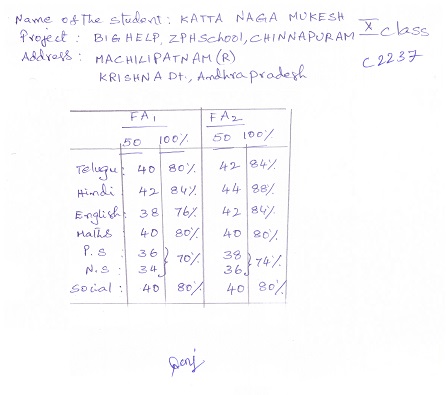 Name of the student : KATTA NAGA MUKESH X class
Project : BIGHELP, ZPHSchool, CHINNAPURAM
Address : MACHILIPATNAM (R) C2237
KRISHNA Dt., Andhra pradesh
FA1 FA2
50 100% 50 100%
Telugu : 40 80% 42 84%
Hindi : 42 84% 44 88%
English : 38 76% 42 84%
Maths 40 80% 40 80%
P.S : 36 70% 38 74%
N.S : 34 36
Social : 40 80% 40 80%